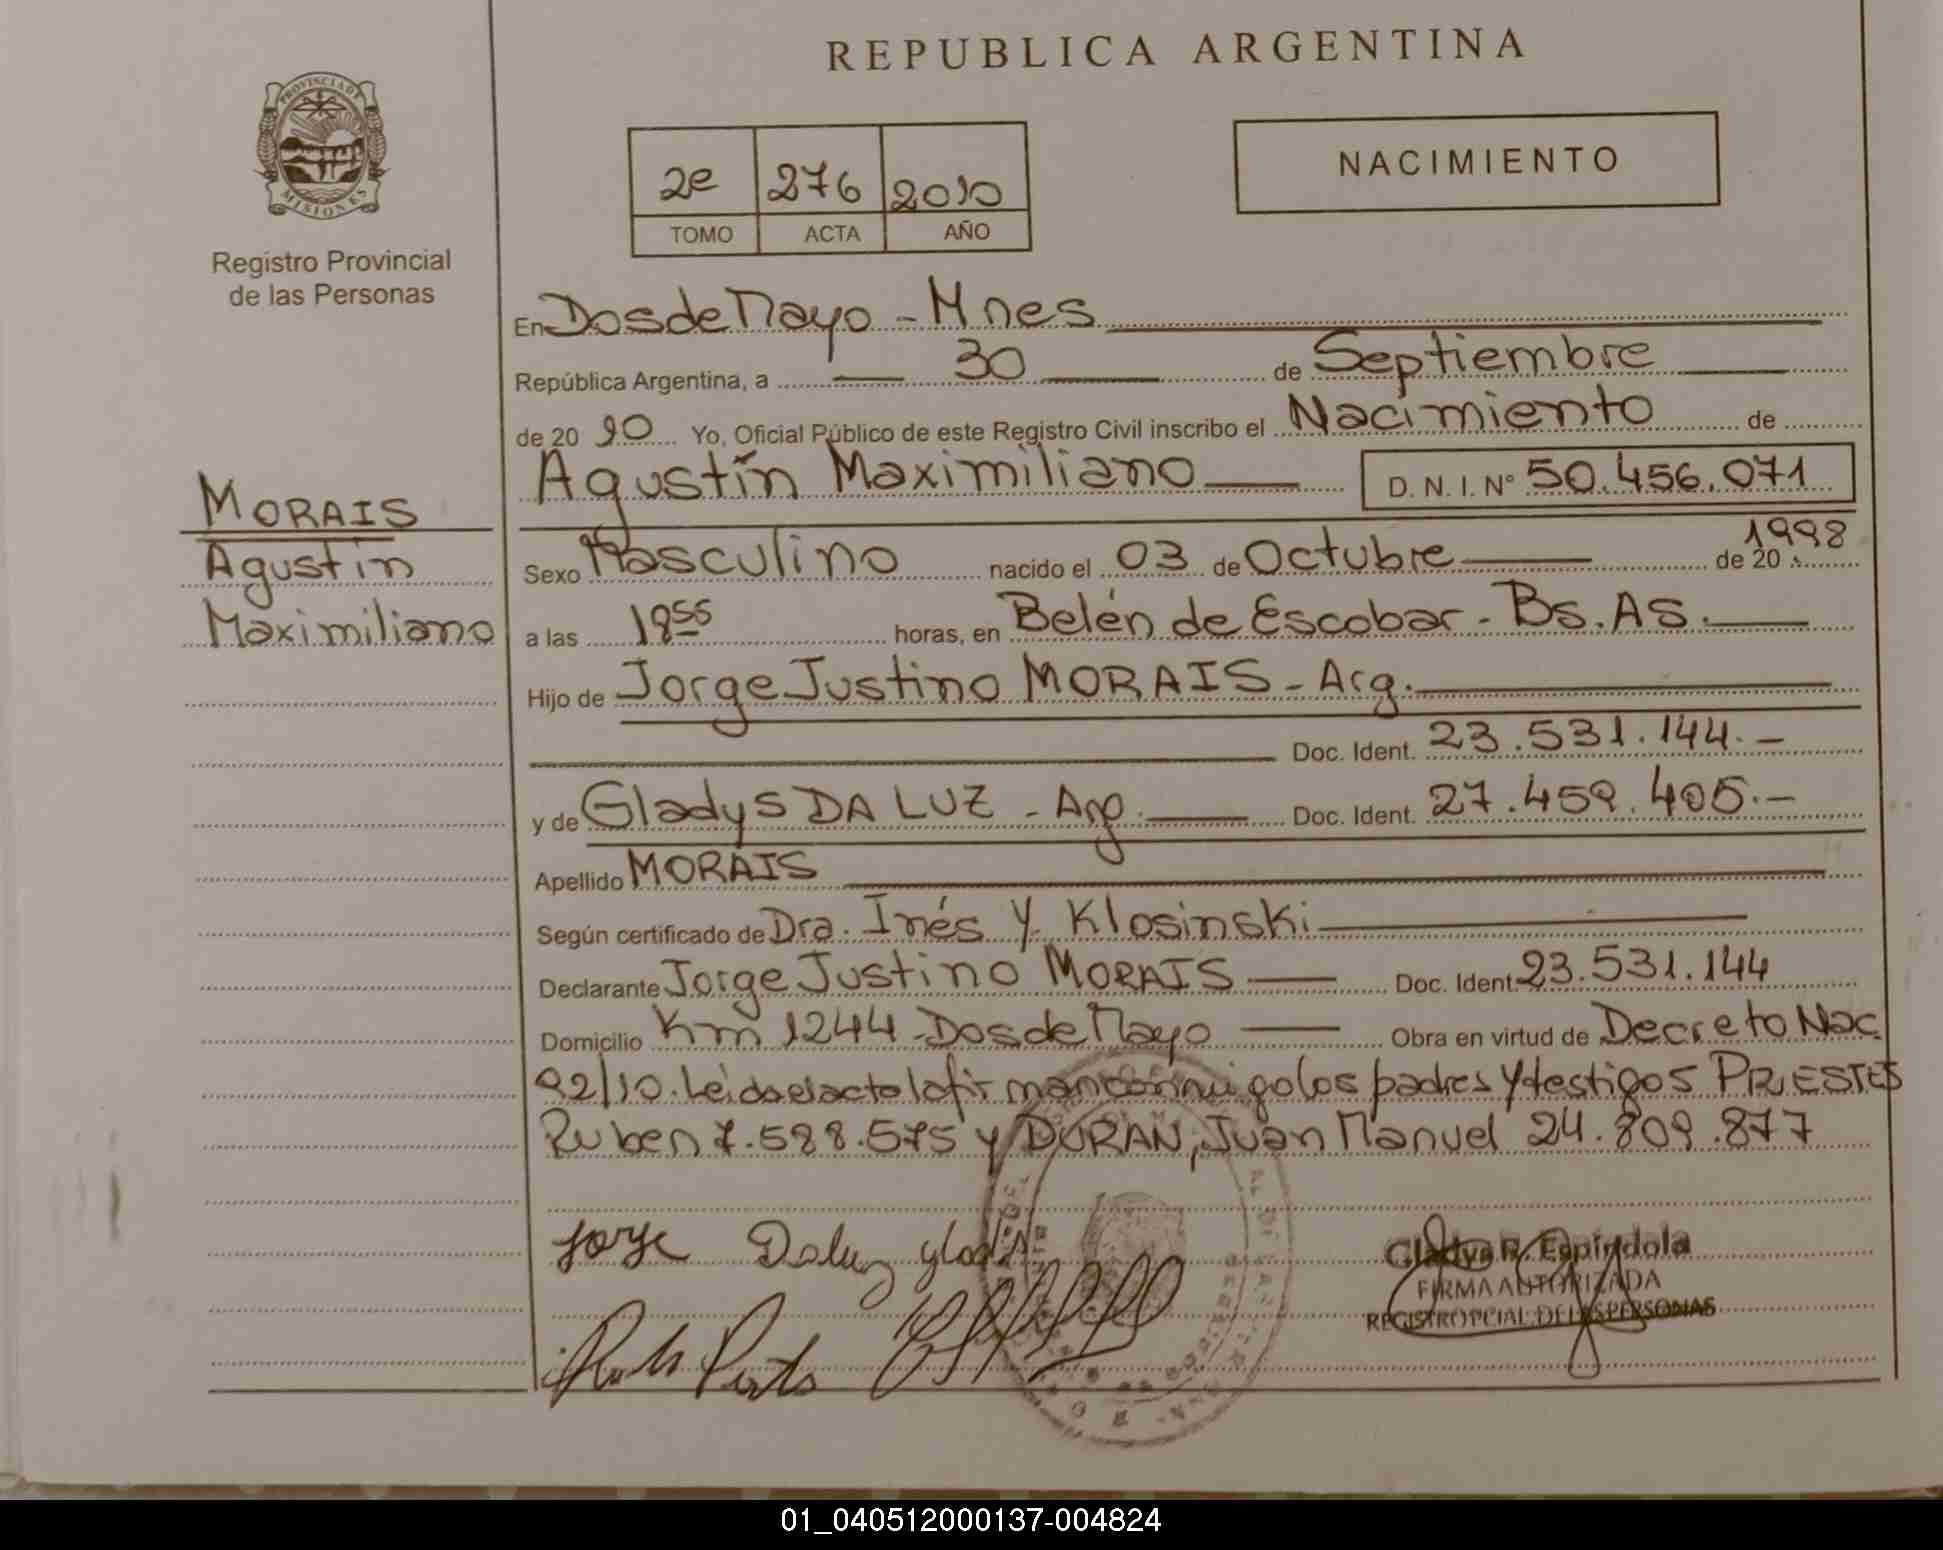 REPUBLICA ARGENTINA
PROVINCIA DE
MISIONES
Registro Provincial
de las Personas
2e 276 2010
TOMO ACTA AÑO
NACIMIENTO
En Dos de Mayo - Mnes
República Argentina, a 30 de Septiembre
de 20 10 Yo, Oficial Público de este Registro Civil inscribo el Nacimiento de
Agustín Maximiliano D. N. I. N° 50.456.071
MORAIS
Agustín
Maximiliano
Sexo Masculino nacido el 03 de Octubre de 20 1998
a las 18 55 horas, en Belén de Escobar - Bs. AS.
Hijo de Jorge Justino MORAIS - Arg.
Doc. Ident. 23.531.144.-
y de Gladys DA LUZ - Arg. Doc. Ident. 27.459.405.-
Apellido MORAIS
Según certificado de Dra. Inés Y. Klosinski
Declarante Jorge Justino MORAIS Doc. Ident. 23.531.144
Domicilio Km 1244 - Dos de Mayo Obra en virtud de Decreto Nac
92/10. Leída el acta la firman conmigo los padres y testigos PRIESTES
Ruben 7.588.575 y DURAN, Juan Manuel 24.809.877
Jorge Daluz glados
Gladys R. Espíndola
FIRMA AUTORIZADA
REGISTRO PCIAL. DE LAS PERSONAS
01_040512000137-004824